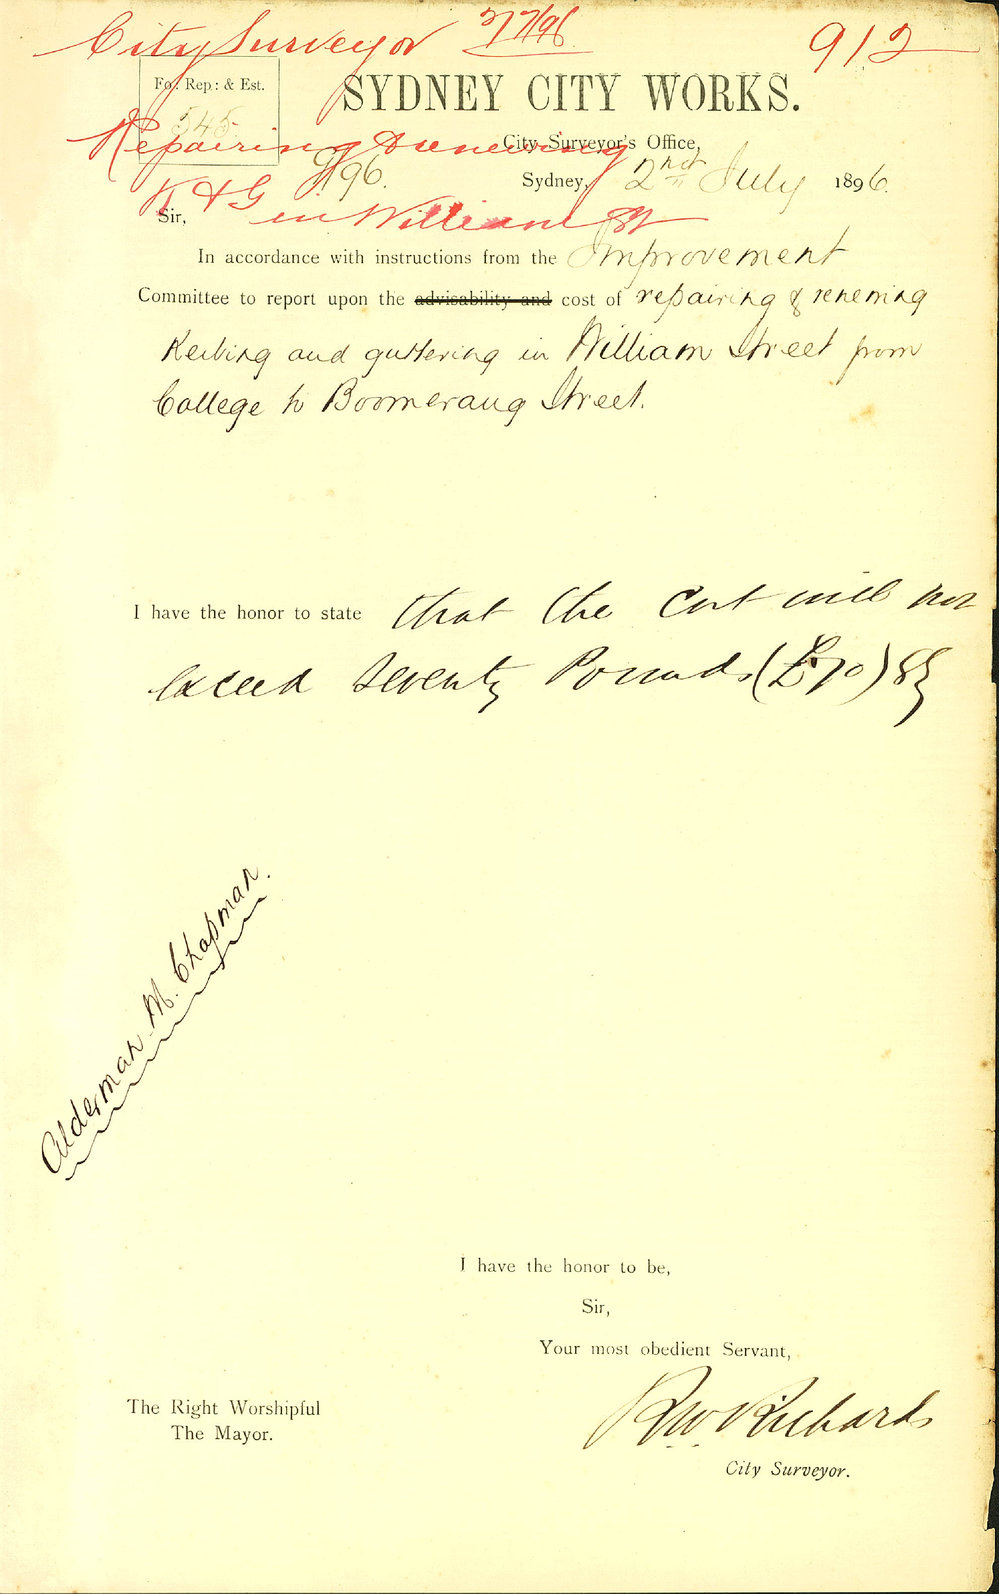 City Surveyor 2/7/96 912
For Rep: & Est.
545
SYDNEY CITY WORKS.
Repairing & renewing
City Surveyor's Office,
96.
Sydney, 2nd July 1896.
K & G in William St
Sir,
In accordance with instructions from the Improvement
Committee to report upon the advisability and cost of repairing & renewing
Kerbing and guttering in William Street from
College to Boomerang Street.
I have the honor to state that the cost will not
exceed Seventy Pounds (£70)
Alderman M. Chapman.
I have the honor to be,
Sir,
Your most obedient Servant,
RW Richards
City Surveyor.
The Right Worshipful
The Mayor.